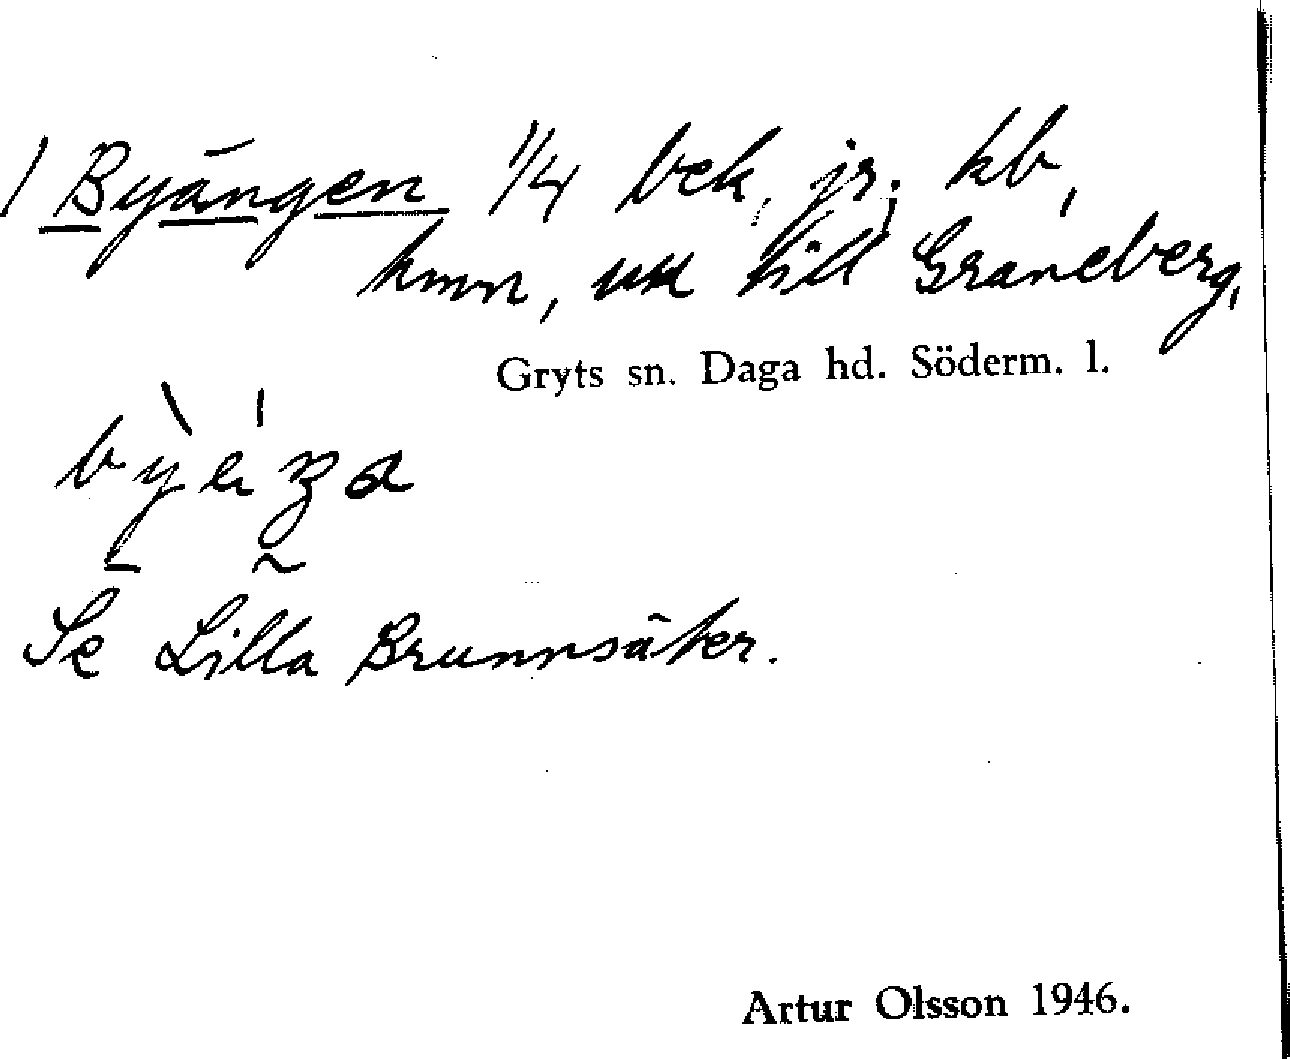 1 Byängen 1/4 bek, jr, kb,
kmn, uu till Graneberg,
Gryts sn. Daga hd. Söderm. l.
Se Lilla Brunnsäker.
Artur Olsson 1946.